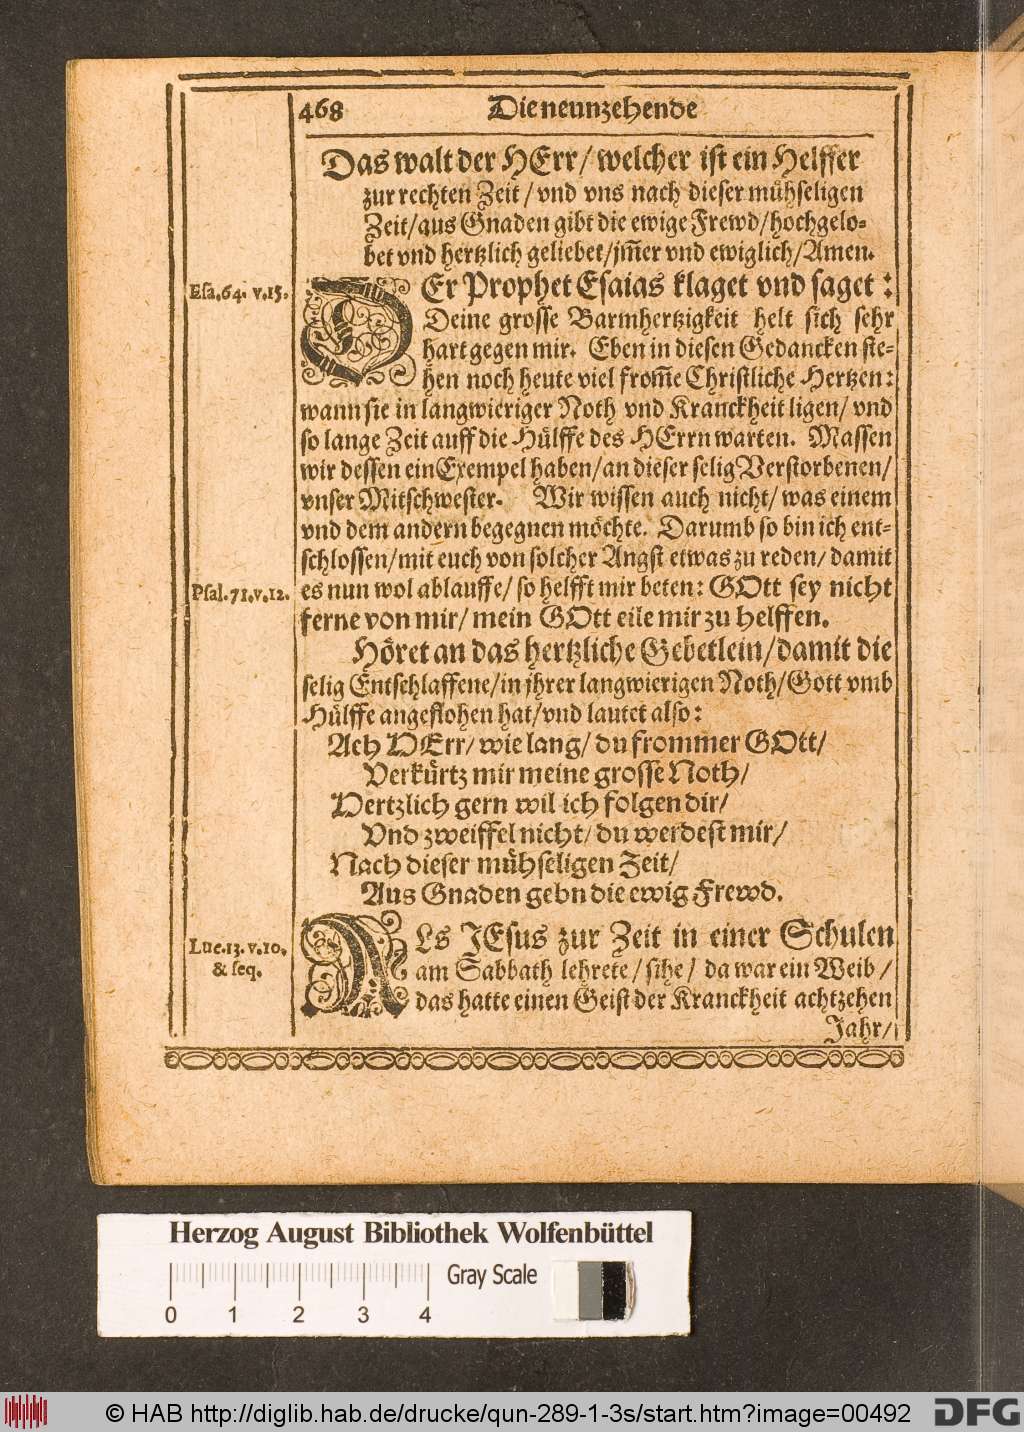 468 Die neunzehende
Das walt der HErr/ welcher ist ein Helffer
zur rechten Zeit/ vnd vns nach dieser mühseligen
Zeit/ aus Gnaden gibt die ewige Frewd/ hochgelo-
bet vnd hertzlich geliebet/ jm̃er vnd ewiglich/ Amen.
Esa. 64. v. 15.
DEr Prophet Esaias klaget vnd saget:
Deine grosse Barmhertzigkeit helt sich sehr
hart gegen mir. Eben in diesen Gedancken ste-
hen noch heute viel from̃e Christliche Hertzen:
wann sie in langwieriger Noth vnd Kranckheit ligen/ vnd
so lange Zeit auff die Hülffe des HErrn warten. Massen
wir dessen ein Exempel haben/ an dieser selig Verstorbenen/
vnser Mitschwester. Wir wissen auch nicht/ was einem
vnd dem andern begegnen möchte. Darumb so bin ich ent-
schlossen/ mit euch von solcher Angst etwas zu reden/ damit
Psal. 71. v. 12.
es nun wol ablauffe/ so helfft mir beten: GOtt sey nicht
ferne von mir/ mein GOtt eile mir zu helffen.
Höret an das hertzliche Gebetlein/ damit die
selig Entschlaffene/ in jhrer langwierigen Noth/ Gott vmb
Hülffe angeflohen hat/ vnd lautet also:
Ach HErr/ wie lang/ du frommer GOtt/
Verkürtz mir meine grosse Noth/
Hertzlich gern wil ich folgen dir/
Vnd zweiffel nicht/ du werdest mir/
Nach dieser mühseligen Zeit/
Aus Gnaden gebn die ewig Frewd.
Luc. 13. v. 10.
& seq.
ALs JEsus zur Zeit in einer Schulen
am Sabbath lehrete/ sihe/ da war ein Weib/
das hatte einen Geist der Kranckheit achtzehen
Jahr/
Herzog August Bibliothek Wolfenbüttel
Gray Scale
0 1 2 3 4
© HAB http://diglib.hab.de/drucke/qun-289-1-3s/start.htm?image=00492
DFG